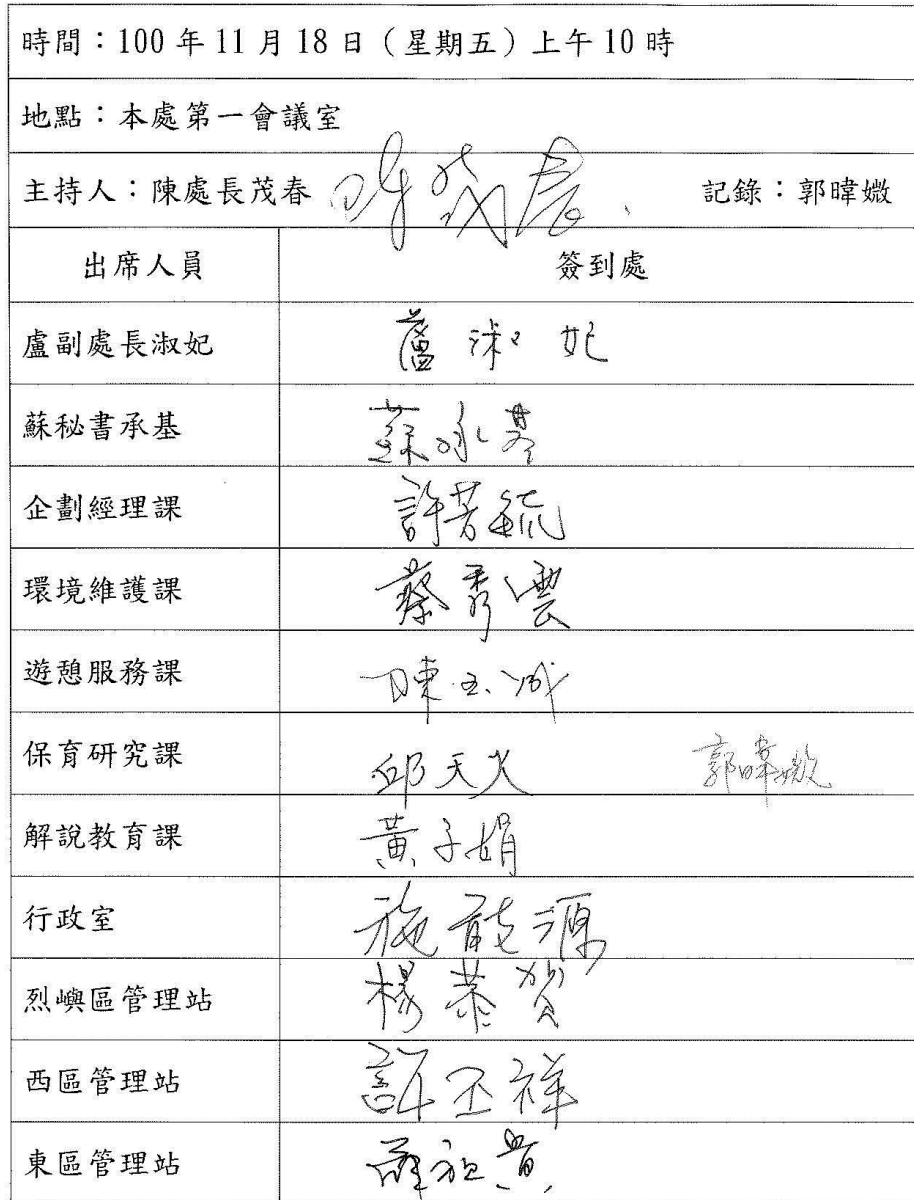 時間：100 年 11 月 18 日（星期五）上午 10 時
地點：本處第一會議室
主持人：陳處長茂春 記錄：郭暐媺
出席人員 簽到處
盧副處長淑妃 盧淑妃
蘇秘書承基 蘇承基
企劃經理課 許芳毓
環境維護課 蔡秀雲
遊憩服務課 陳玉成
保育研究課 邱天火 郭暐媺
解說教育課 黃子娟
行政室 施能源
烈嶼區管理站 楊恭賀
西區管理站 許丕祥
東區管理站